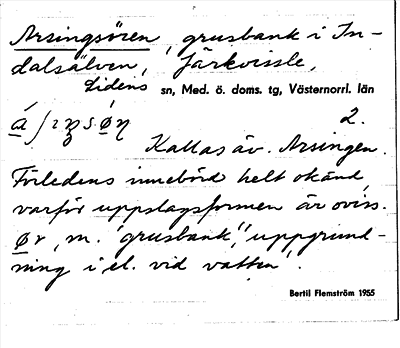 Arsingsören, grusbank i In-
dalsälven, Järkvissle,
Lidens sn, Med. ö. doms. tg, Västernorrl. län
2.
Kallas äv. Arsingen.
Förledens innebörd helt okänd
varför uppslagsformen är oviss.
ør, m. 'grusbank', 'uppgrund-
ning i el. vid vatten'.
Bertil Flemström 1955